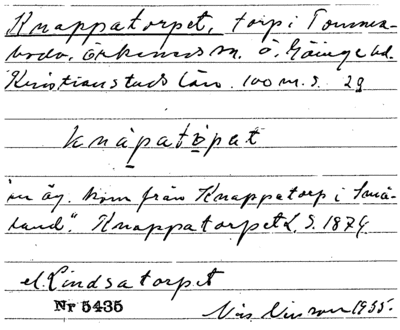 Knappatorpet, torp i Tommabodo, Örkeneds sn. Ö. Göinge hd.
Kristianstads län. 100 m. S. 29
knápatòpat
"en äg. kom från Knappatorp i Små-
land". Knappatorpet L. S. 1879.
el. Lindsatorpet
Nr 5435
Nils Nilsson 1955.